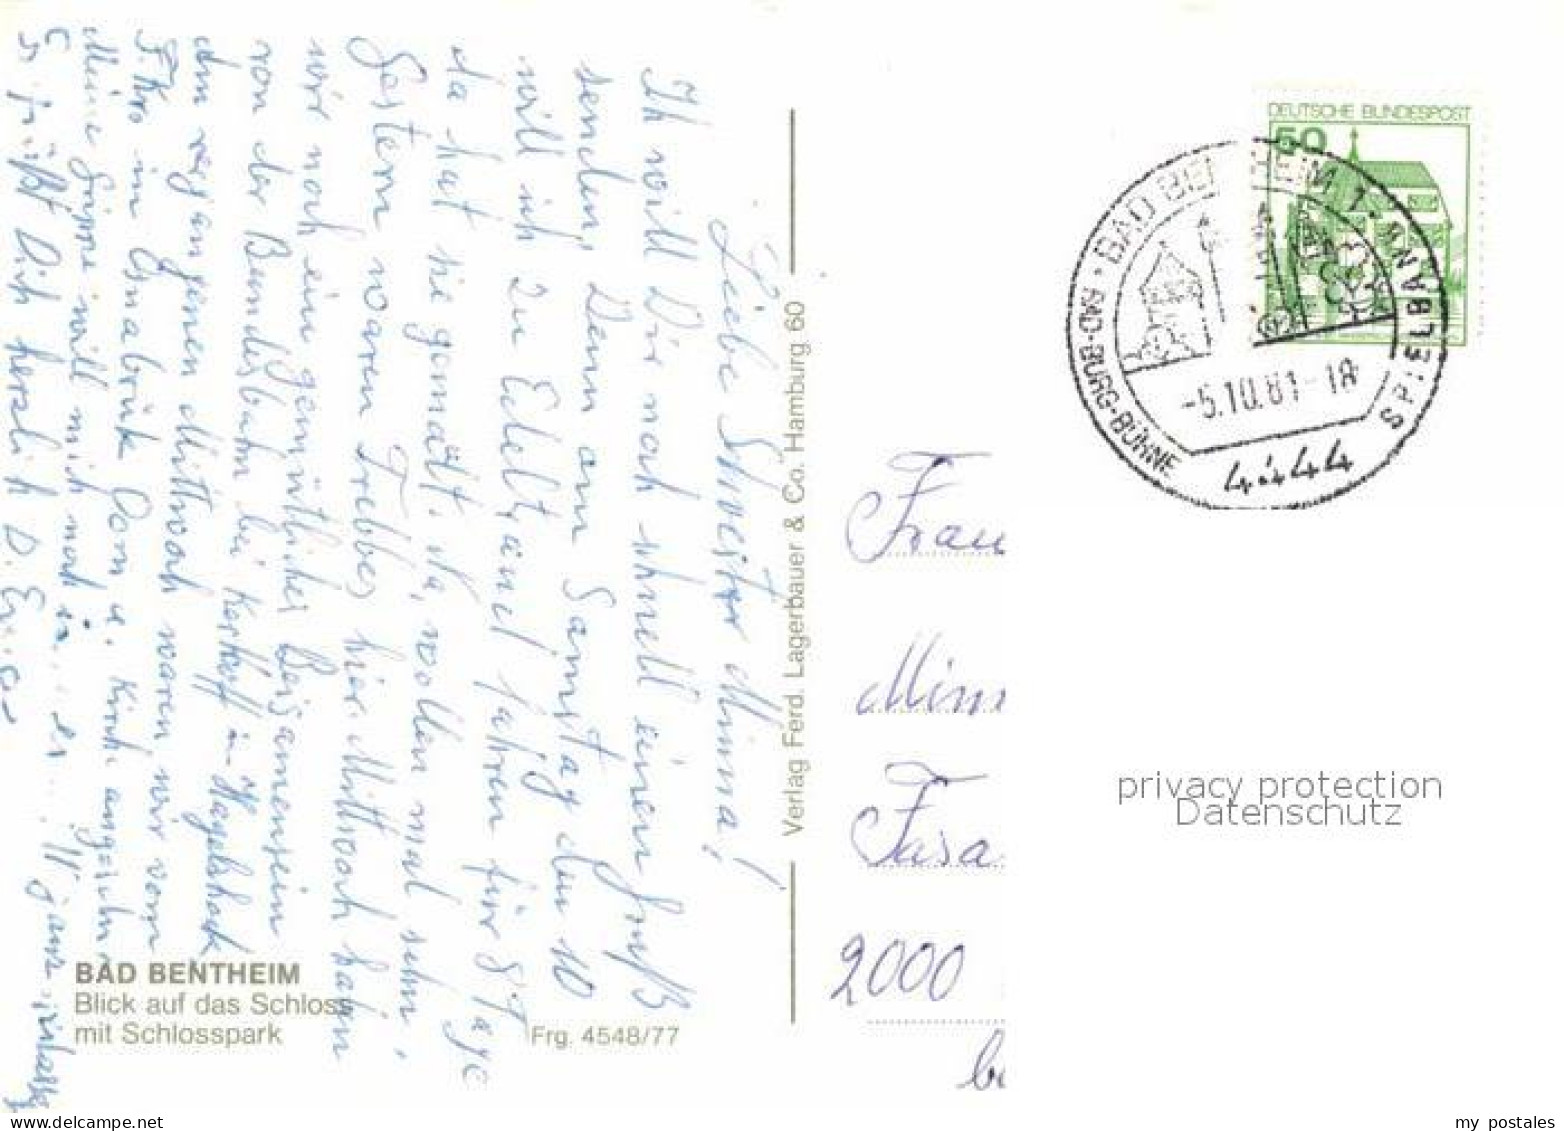 Liebe Schwester Minna!
Ich will Dir noch schnell einen Gruß
senden, Denn am Samstag den 10
will ich zu Edeltraud fahren für 8 Tage
da hat sie gemäht. Na, wollen mal sehn,
Gestern waren Trebbes hier. Mittwoch haben
wir noch ein gemütliches Beisammensein
von der Bundesbahn bei in Hagelshoek
Am vergangenen Mittwoch waren wir vom
F. Krs in Osnabrück Dom u. Kirch. angesehn
Meine Grippe will mich noch
Es grüßt Dich herzlich D.
BAD BENTHEIM
Blick auf das Schloss
mit Schlosspark
Frg. 4548/77
Verlag Ferd. Lagerbauer & Co. Hamburg 60
DEUTSCHE BUNDESPOST
50
BAD BENTHEIM 1
SPIELBANK
BURG-BÜHNE
-5.10.81-18
4444
Frau
Minn
Fasa
2000
be
privacy protection
Datenschutz
my postales